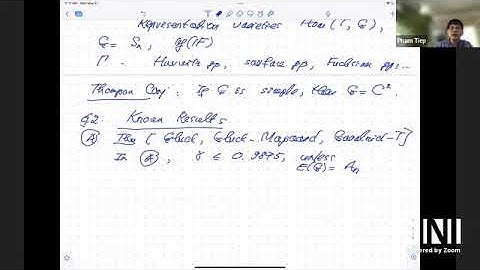 Representation varieties Hom(Γ, G),
G = Sn, GL(F)
Γ - Hurwitz gp, surface gp, Fuchsian gp, ...
Thompson Conj: If G is simple, then G = C².
§2. Known Results
(A) Thm [Gluck, Gluck-Magaard, Guralnick-T]
In (A), γ ≤ 0.9875, unless E(G) = An
Pham Tiep
Powered by Zoom